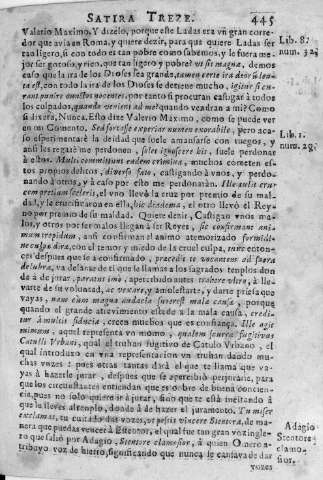 SATIRA TREZE. 445
Valerio Maximo, Y dizelo, porque este Ladas era vn gran corre-
dor que auia en Roma, y quiere dezir, para que quiere Ladas ser
tan ligero, si con todo es tan pobre como sabemos, y le fuera me
jor ser gotoso, y rico, que tan ligero y pobre? vt sit magna, demos
caso que la ira de los Dioses sea grande, tamen certe ira deorũ len-
ta est, con todo la ira de los Dioses se detiene mucho, igitur si cu-
rant punire cunctos nocentes, por tanto si procuran castigar à todos
los culpados, quando venient ad me? quando vendran a mi? Como
si dixera, Nunca. Esto dize Valerio Maximo, como se puede ver
en mi Comento. Sed forsasse experiar numen exorabile, pero aca-
so esperimentarè la deidad que suele amansarse con ruegos, y
ansi les regarè me perdonen, solet ignoscere his, suele perdonar
à estos. Multi committunt eadem crimina, muchos cometen es-
tos propios delitos, diverso fato, castigando à vnos, y perdo-
nando à otros, y à caso por esto me perdonaràn. Ille tulit cru-
cem pretium sceleris, el vno llevò la cruz por premio de su mal-
dad, y le crucificaron en ella, hic deadema, el otro llevò el Rey-
no por premio de su maldad. Quiere dezir, Castigan vnos ma-
los, y otros por ser malos llegan à ser Reyes, sic confirmant ani-
mum trepidum, ansi confirman el animo atemorizado formidi-
ne culpe dira, con el temor y miedo de la cruel culpa, tunc enton-
ces despues que se à confirmado, precedit te vocantem ad sacra
delubra, va delante de ti que le llamas a los sagrados templos don
de à de jurar, paratus imò, apercibido antes trahere vltro, à lle-
varte de su voluntad, ac vexare, y a molestarte, y darte prisa que
vayas, nam cùm magna audacia superest mala causa, porque
quando el grande atrevimiento excede a la mala causa, credi-
tur à multis fiducia, creen muchos que es confiança. Ille agit
mimum, aquel representa vn momo, qualem scurra fugitivus
Catulli Vrbani, qual el truhan fugitivo de Catulo Vrbano, el
qual introduxo en vna representacion vn truhan dando mu-
chas vozes: pues otras tantas darà el que te llama que va-
yas à hazerle jurar, despues que se apercibiò perjurarse, para
que los circunstantes entiendan que es ombre de buena concien-
cia, pues no solo quiere ir à jurar, sino que te està incitando à
que le lleves al templo, donde à de hazer el juramento. Tu miser
exclamas, tu cuitado das vozes, vt possis vincere Stentora, de ma-
nera que puedas vencer à Estentor, el qual fue tan gran vozinglero
que saliò por Adagio, Stentore clamosior, à quien Omero a-
tribuyo voz de hierro, significando que nunca se cansava de dar
vozes
Lib. 8.
num. 32.
Lib. 1.
num. 29.
Adagio
Stentore
clamo-
sior.